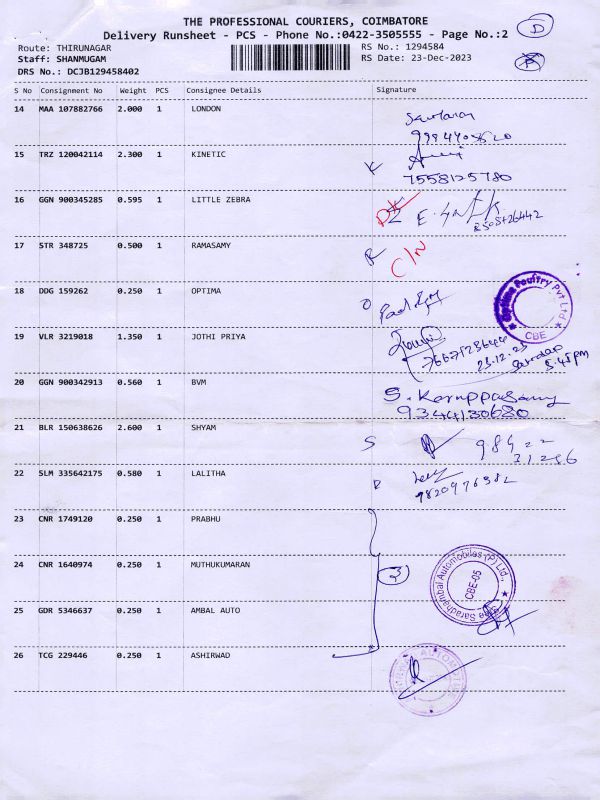 THE PROFESSIONAL COURIERS, COIMBATORE
Delivery Runsheet - PCS - Phone No.:0422-3505555 - Page No.:2 D
Route: THIRUNAGAR RS No.: 1294584
Staff: SHANMUGAM RS Date: 23-Dec-2023
DRS No.: DCJB129458402
S No Consignment No Weight PCS Consignee Details Signature
14 MAA 107882766 2.000 1 LONDON
15 TRZ 120042114 2.300 1 KINETIC K
7558125780
16 GGN 900345285 0.595 1 LITTLE ZEBRA
17 STR 348725 0.500 1 RAMASAMY R C/N
18 DDG 159262 0.250 1 OPTIMA O
Optima Poultry Pvt Ltd CBE
19 VLR 3219018 1.350 1 JOTHI PRIYA
23.12.23
5.45pm
20 GGN 900342913 0.560 1 BVM S. Karuppasamy
9344130680
21 BLR 150638626 2.600 1 SHYAM S 98422
31286
22 SLM 335642175 0.580 1 LALITHA
9820976982
23 CNR 1749120 0.250 1 PRABHU
24 CNR 1640974 0.250 1 MUTHUKUMARAN 3
Saradhambal Automobiles (P) Ltd., CBE-05
25 GDR 5346637 0.250 1 AMBAL AUTO
26 TCG 229446 0.250 1 ASHIRWAD